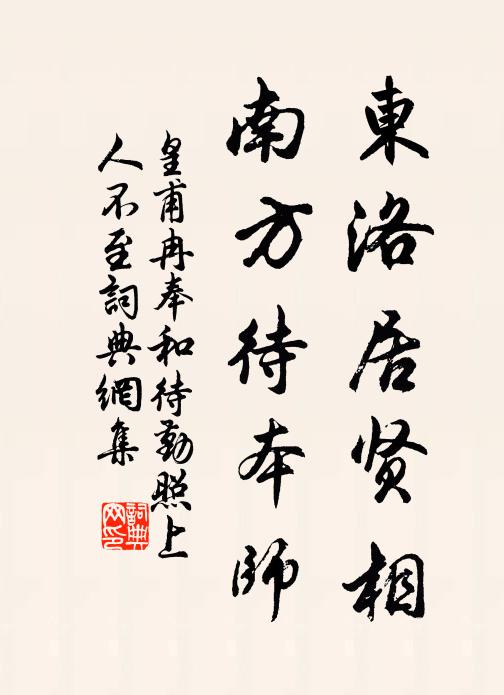 東洛居贤相
南方待本師
皇甫冉奉和待勤照上
人不至詞典網集
詞典
网印